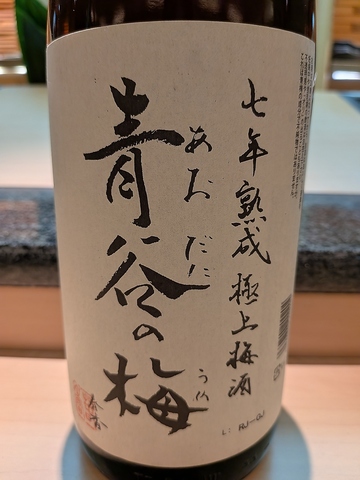 七年熟成 極上梅酒
青谷の梅
あおだに
うめ